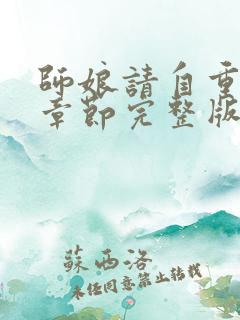 師娘請自重
章節完整版
蘇西洛
未經同意禁止轉載